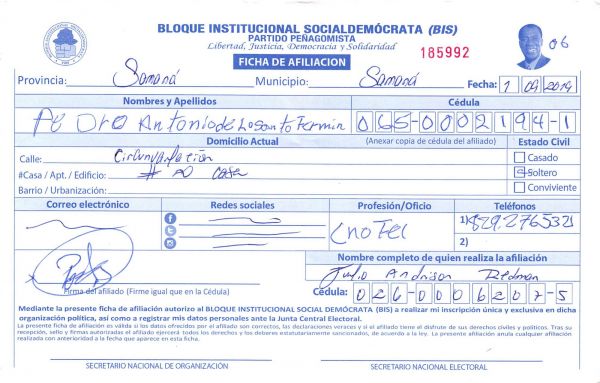 BLOQUE INSTITUCIONAL SOCIALDEMÓCRATA (BIS)
PARTIDO PEÑAGOMISTA
Libertad, Justicia, Democracia y Solidaridad
FICHA DE AFILIACION
185992
06
Provincia: Samaná Municipio: Samaná Fecha: 1 09 2019
Nombres y Apellidos Cédula
Pedro Antonio de Losanto Fermin 065-0002194-1
Domicilio Actual (Anexar copia de cédula del afiliado) Estado Civil
Calle: Circunvalación
Casado
#Casa / Apt. / Edificio: # 20 casa
Soltero
Barrio / Urbanización:
Conviviente
Correo electrónico Redes sociales Profesión/Oficio Teléfonos
1) 829.2765321
2)
Nombre completo de quien realiza la afiliación
Julio Andrison Redman
Firma del afiliado (Firme igual que en la Cédula)
Cédula: 026-0006207-5
Mediante la presente ficha de afiliación autorizo al BLOQUE INSTITUCIONAL SOCIAL DEMÓCRATA (BIS) a realizar mi inscripción única y exclusiva en dicha
organización política, así como a registrar mis datos personales ante la Junta Central Electoral.
La presente ficha de afiliación es válida si los datos ofrecidos por el afiliado son correctos, las declaraciones veraces y si el afiliado tiene el disfrute de sus derechos civiles y políticos. Tras su
recepción, sello y firmas autorizadas el afiliado ejercerá todos los derechos y los deberes estatutariamente sancionados, de acuerdo a la ley. La presente afiliación anula cualquier afiliación
realizada con anterioridad a la fecha que aparece en esta ficha.
SECRETARIO NACIONAL DE ORGANIZACIÓN SECRETARIO NACIONAL ELECTORAL